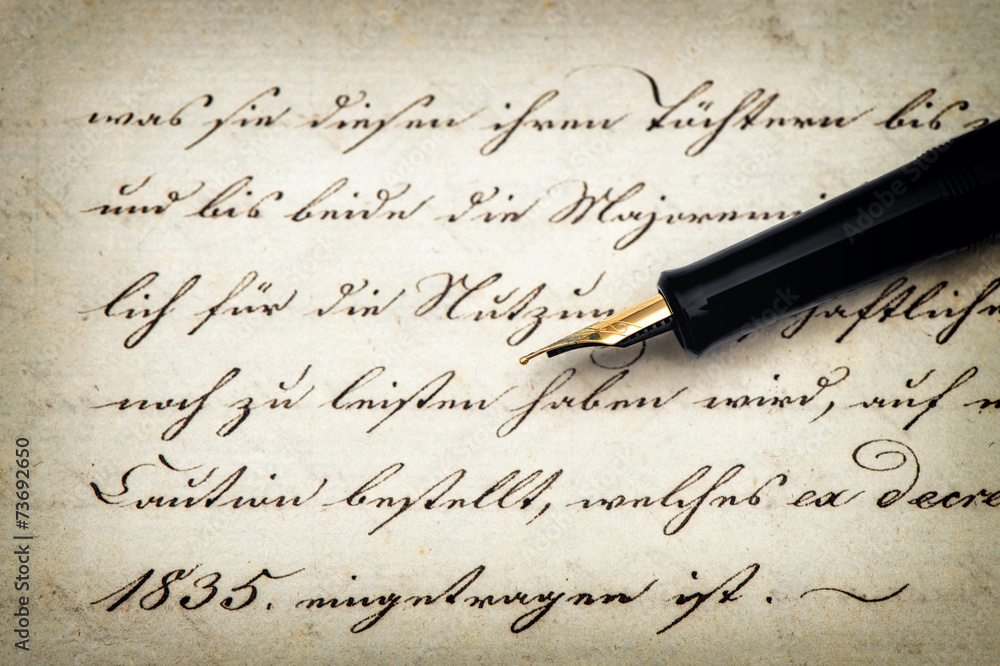 was sie diesen ihren Töchtern bis
und bis beide die Majorenni
lich für die Nutzun haftliche
noch zu leisten haben wird, auf
Caution bestellt, welches ex decre
1835. eingetragen ist.
Adobe Stock | #73692650